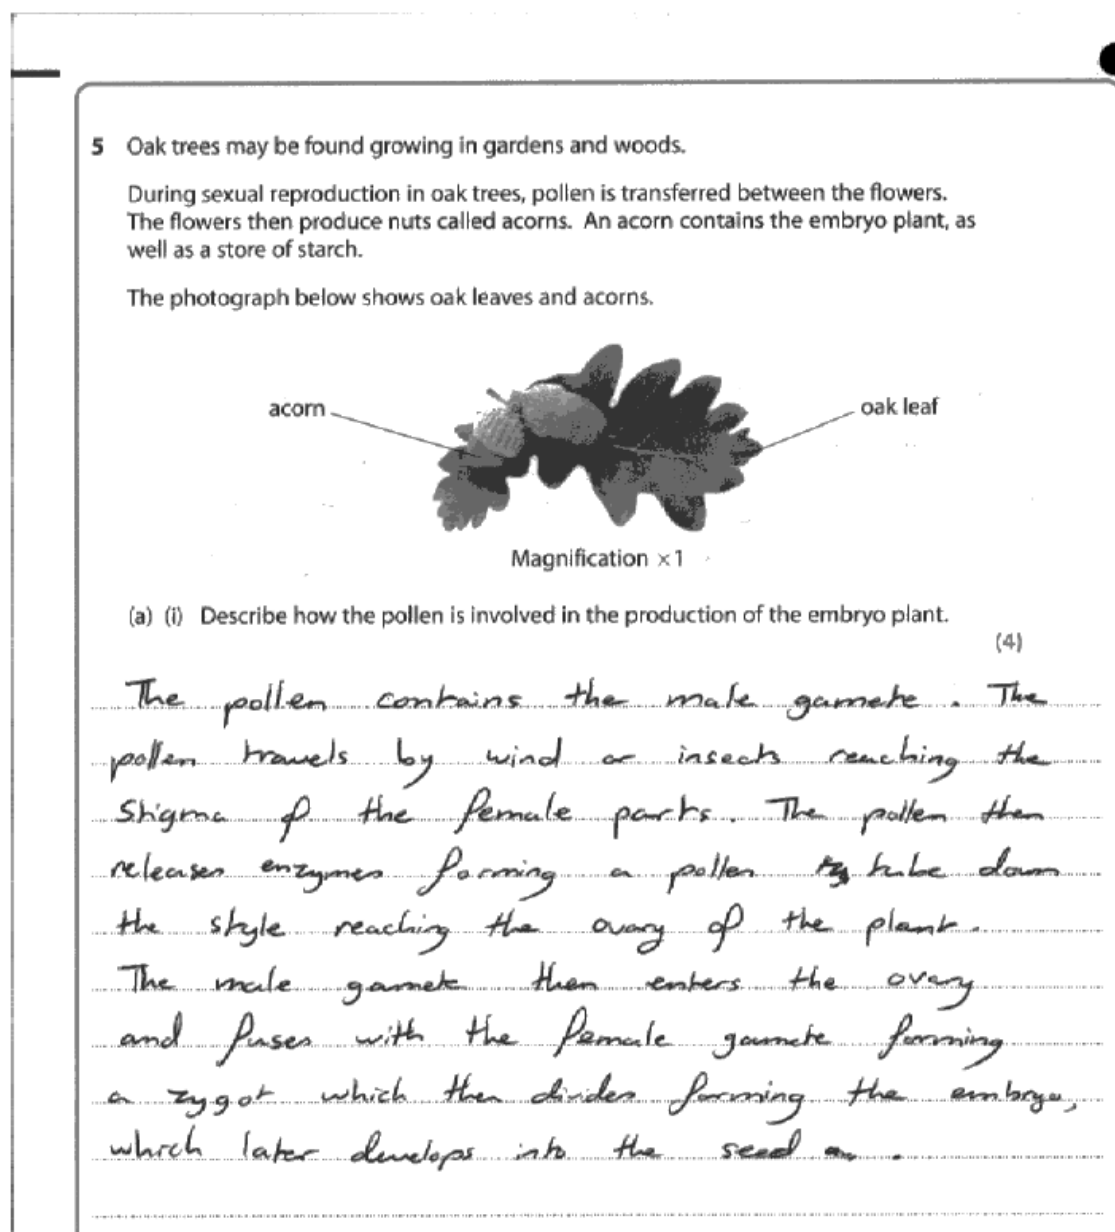 5 Oak trees may be found growing in gardens and woods.
During sexual reproduction in oak trees, pollen is transferred between the flowers.
The flowers then produce nuts called acorns. An acorn contains the embryo plant, as
well as a store of starch.
The photograph below shows oak leaves and acorns.
acorn
oak leaf
Magnification ×1
(a) (i) Describe how the pollen is involved in the production of the embryo plant.
(4)
The pollen contains the male gamete. The
pollen travels by wind or insects reaching the
stigma of the female parts. The pollen then
releases enzymes forming a pollen tube down
the style reaching the ovary of the plant.
The male gamete then enters the ovary
and fuses with the female gamete forming
a zygot which then divides forming the embryo,
which later develops into the seed.